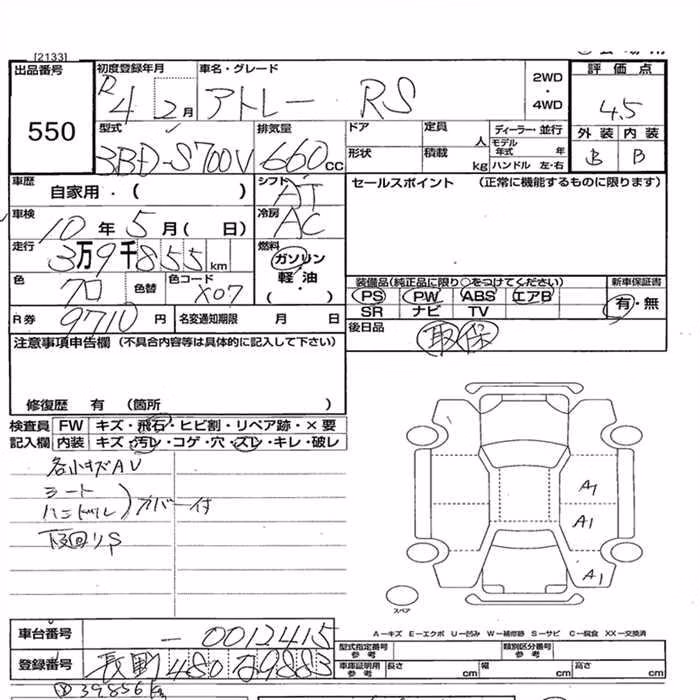 [2133]
出品番号
550
初度登録年月
R4 2月
車名・グレード
アトレー RS
2WD
・
4WD
評価点
4.5
外装 内装
B B
型式
3BD-S700V
排気量
660cc
ドア
定員
人
ディーラー・並行
モデル年式 年
形状
積載
kg
ハンドル 左・右
車歴
自家用・( )
シフト
AT
車検
10年5月( 日)
冷房
AC
走行
3万9千855km
燃料
ガソリン
軽・油
( )
色
クロ
色替
色コード
X07
R券
9710円
名変通知期限 月 日
セールスポイント (正常に機能するものに限ります)
装備品(純正品に限り○をつけてください)
新車保証書
PS PW ABS エアB
SR ナビ TV
有・無
後日品
取 保
注意事項申告欄 (不具合内容等は具体的に記入して下さい)
修復歴 有 (箇所 )
検査員 FW キズ・飛石・ヒビ割・リペア跡・×要
記入欄 内装 キズ・汚レ・コゲ・穴・スレ・キレ・破レ
各小キズAV
シート
ハンドル
カバー付
下回りS
A1
A1
A1
スペア
A-キズ E-エクボ U-凹み W-補修跡 S-サビ C-腐食 XX-交換済
車台番号
-0012415
登録番号
長野 480 な9883
型式指定番号 参考
類別区分番号 参考
車庫証明用 参考
長さ cm
幅 cm
高さ cm
39.856km